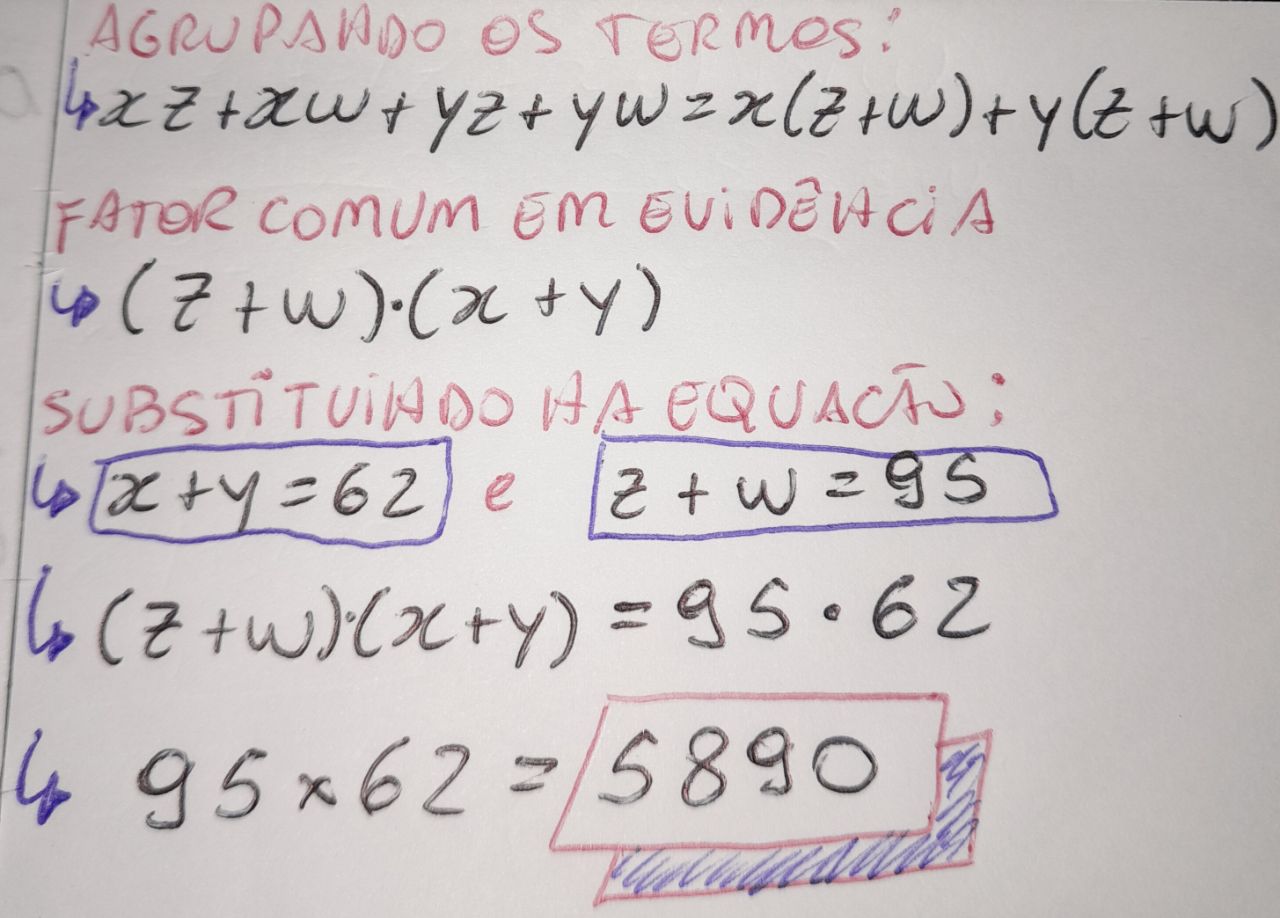 AGRUPANDO OS TERMOS:
↳ xz+xw+yz+yw=x(z+w)+y(z+w)
FATOR COMUM EM EVIDÊNCIA
↳ (z+w)·(x+y)
SUBSTITUINDO NA EQUAÇÃO:
↳ x+y=62 e z+w=95
↳ (z+w)·(x+y)=95·62
↳ 95×62=5890